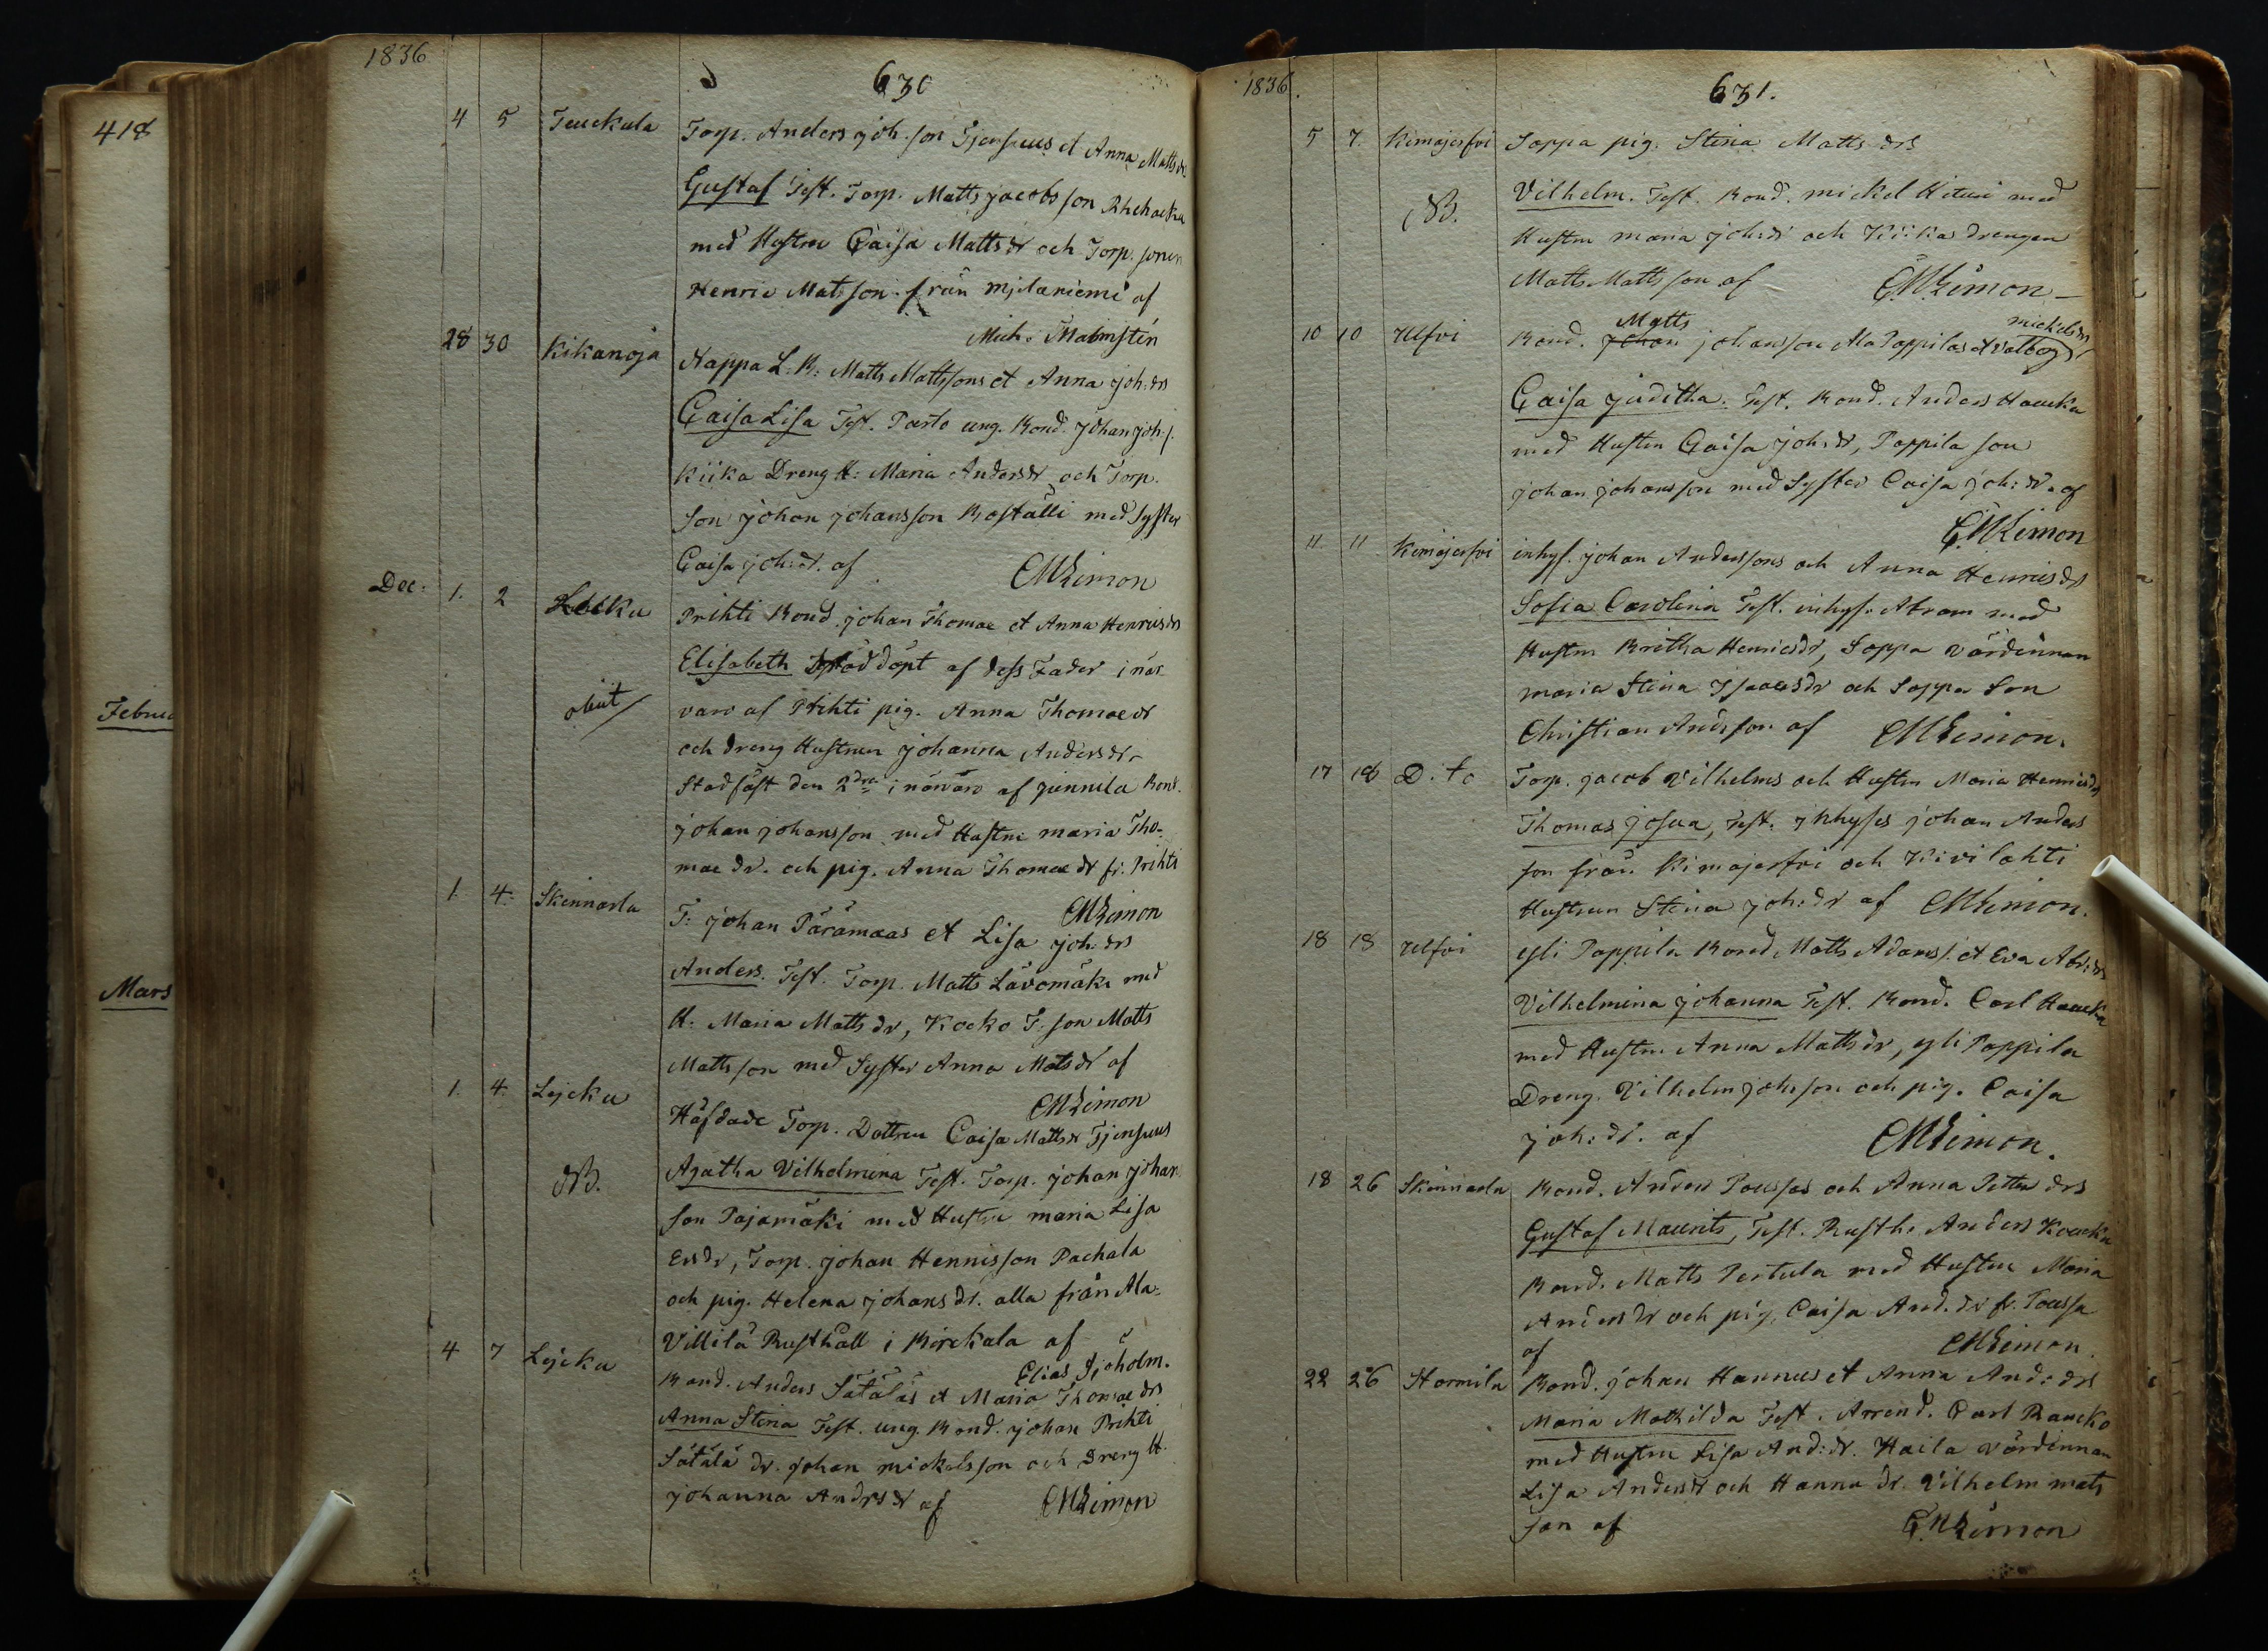 418
Februa
Mars
1836
630
4 5 Teuckula Torp. Anders Joh.son Tjensuus et Anna Matts dr
Gustaf Test. Torp. Matts Jacobsson
med Hustru Caisa Matts dr och Torp. sonen
Henric Matsson från Mjilariemi af
Mich. Malmstén
28 30 Kikanoja Nappa L: B: Matts Mattssons et Anna Joh: drs
Caisa Lisa Test. Parto ung. Bond. Johan Joh: s.
Kiika Dreng H: Maria Anders dr och Torp.
Son Johan Johansson Boställi med Syster
Caisa Joh: dr. af CM Limon
Dec: 1. 2 Prihti Bond. Johan Thomae et Anna Henrics drs
Elisabeth döpt af dess Fader i när
obiit/ varo af Prihti pig. Anna Thomae dr
och dreng Hustrun Johanna Anders dr
Stadfäst den 2dre i närvaro af Junnila Bond.
Johan Johansson med Hustru Maria Tho-
mae dr. och pig. Anna Thomae dr fr. Prihti
CM Limon
1. 4. Skinnarla T: Johan Päramaas et Lisa Joh: drs
Anders. Test. Torp. Matts Lavomäki med
H: Maria Matts dr, Kocko T: son Matts
Mattsson med Syster Anna Mats dr af
CM Limon
1. 4. Lejcku Häfdade Torp. Dottren Caisa Matts dr Tjensuus
NB. Agatha Vilhelmina Test. Torp. Johan Johan
son Pajamäki med Hustru Maria Lisa
Ersdr, Torp. Johan Hennisson Pachala
och pig. Helena Johans dr. alla från Ala-
Villilä Rusthåll i Birckala af
Elias Sjöholm.
4 7 Lejcku Bond. Anders Sätäläs et Maria Thomae drs
Anna Stina Test. ung. Bond. Johan Prihti
Sätälä dr. Johan Mickelsson och Dreng H.
Johanna Andrs dr af CM Limon
1836.
631.
5 7. Kimajerfvi Soppa pig. Stina Matts drs
Vilhelm. Test. Bond. Mickel Hituri med
NB.
Hustru Maria Joh: dr och Kiika drengen
Matts Mattsson af CM Limon
10 10 Ulfvi Bond. Johan Matts Johansson Ala Poppilas et Valborg Mickels dr
Caisa Juditha. Test. Bond. Anders Haucka
med Hustru Caisa Joh: dr, Poppila son
Johan Johansson med Syster Caisa Joh: dr. af
CM Limon
11. 11 Kimajerfvi inhys. Johan Anderssons och Anna Henrics drs
Sofia Carolina Test. inhys. Abram med
Hustru Britha Henricsdr, Soppa värdinnan
Maria Stina Isaacs dr och Soppa Son
Christian Andsson af CM Limon.
17 18 D:to Torp. Jacob Vilhelms och Hustru Maria Henricsdrs
Thomas Josua, Test. Inhyses Johan Anders
son från Kimajerfvi och Kivilahti
Hustrun Stina Joh: dr af CM Limon.
18 18 Ulfvi Yli Poppila Bond. Matts Adams s. et Eva Abr: drs
Vilhelmina Johanna Test. Bond. Carl Haucka
med Hustru Anna Matts dr, Yli Poppila
Dreng. Vilhelm Johsson och pig. Caisa
Joh: dr. af CM Limon.
18 26 Skinnarla Bond. Anders Poussas och Anna Petter drs
Gustaf Maurits, Test. Rusth. Anders Koucki
Bond. Matts Pertula med Hustru Maria
Anders dr och pig. Caisa And. dr fr. Poussa
af CM Limon.
22 26 Stormila Bond. Johan Hannus et Anna And: drs
Maria Mathilda Test. Arrend. Carl Raucko
med Hustru Lisa And: dr. Haila värdinnan
Lisa Anders dr och Hannu dr. Vilhelm Mats
son af CM Limon